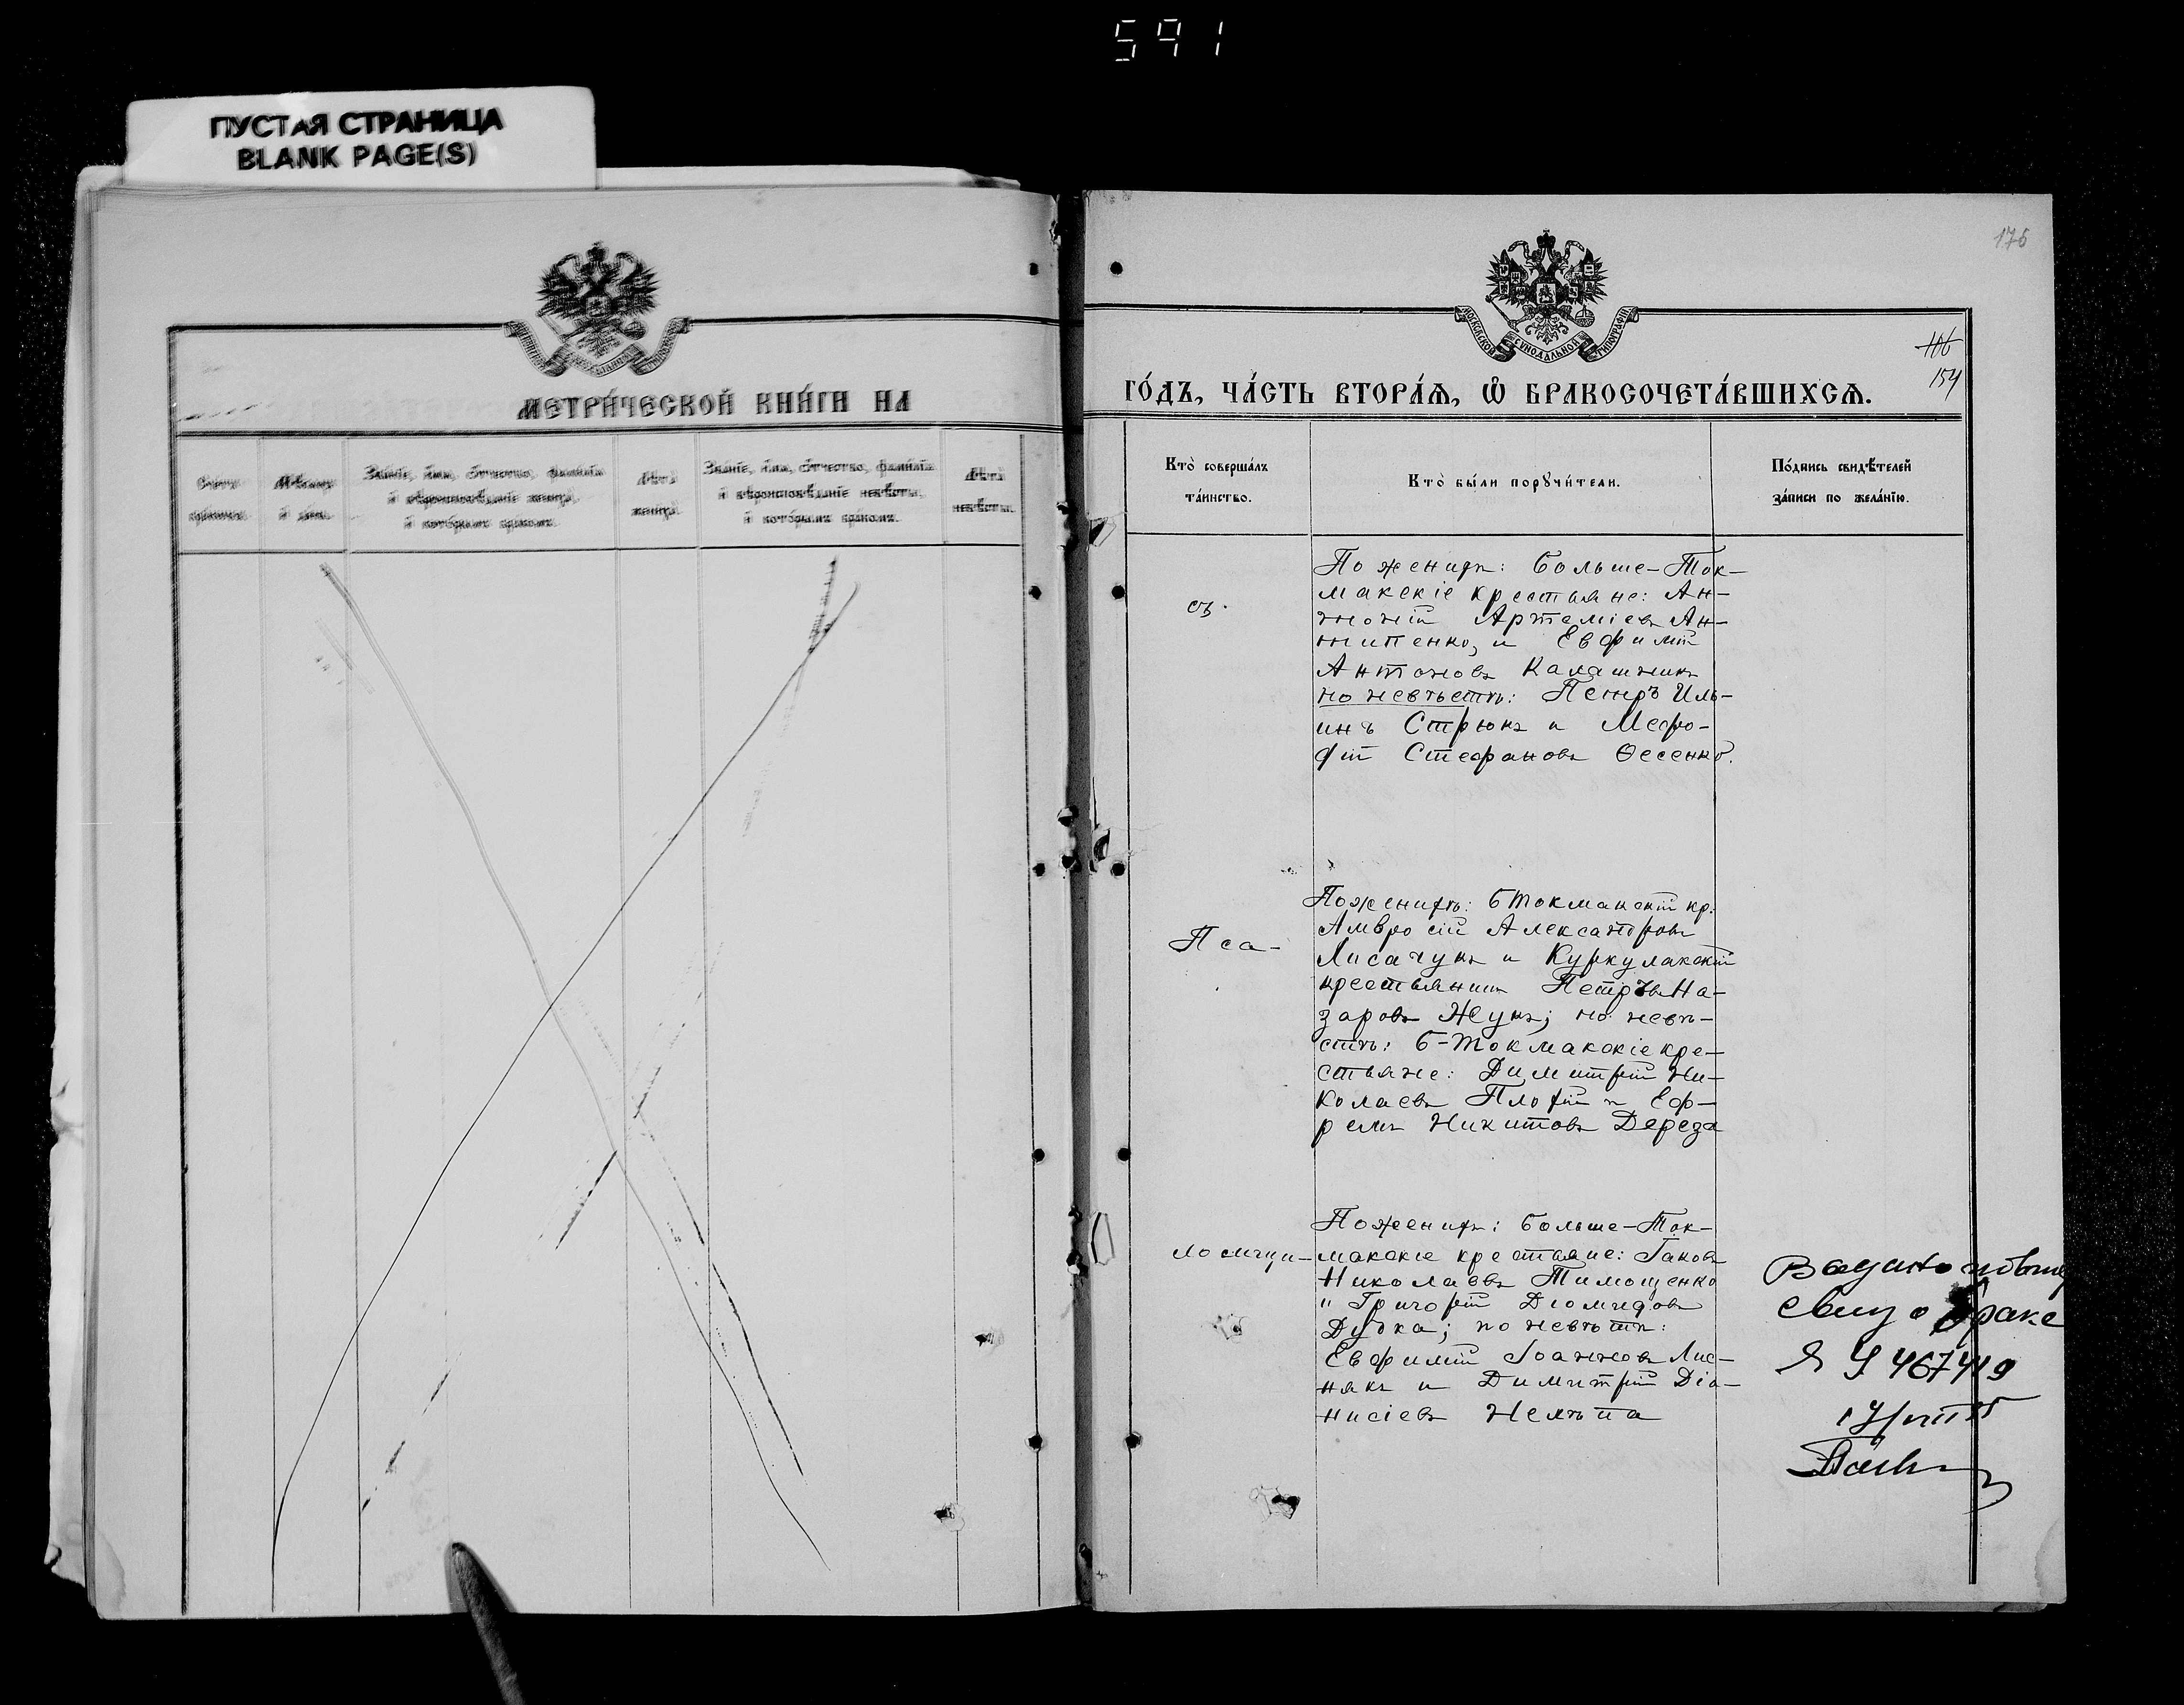 591
ПУСТАЯ СТРАНИЦА
BLANK PAGE(S)
МЕТРИ́ЧЕСКОЙ КНИ́ГИ НА
Счетъ
бра́ковъ.
Мѣ́сяцъ
и҆ день.
Зва́нїе, и҆́мѧ, ѻ҆́тчество, фами́лїѧ
и҆ вѣроисповѣ́данїе жениха̀,
и҆ кото́рымъ бра́комъ.
Лѣ́та
жениха̀.
Зва́нїе, и҆́мѧ, ѻ҆́тчество, фами́лїѧ
и҆ вѣроисповѣ́данїе невѣ́сты,
и҆ кото́рымъ бра́комъ.
Лѣ́та
невѣ́сты.
176
МОСКОВСКОЙ СѴНОДАЛЬНОЙ ТИПОГРАФІИ
106
154
ГО́ДЪ, ЧА́СТЬ ВТОРА́Ѧ, Ѽ БРАКОСОЧЕТА́ВШИХСѦ.
Кто̀ соверша́лъ
та́инство.
Кто̀ бы́ли порꙋчи́тели.
По́дпись свидѣ́телей
за́писи по жела́нїю.
По женихѣ: Больше-Ток-
макскіе крестьяне: Ан-
тоній Артеміевъ Ан-
типенко, и Евфимій
съ.
Антоновъ Калашникъ
по невѣстѣ: Петръ Иль-
инъ Стрюкъ и Мефо-
дій Стефановъ Ѳесенко.
По женихѣ: Б Токмакскій кр.
Амвросій Александровъ
Пса-
Лисачукъ и Куркулакскій
крестьянинъ Петръ На-
заровъ Жукъ; по невѣ-
стѣ: Б-Токмакскіе кре-
стьяне: Димитрій Ни-
колаевъ Плохій и Еф-
ремъ Никитовъ Дереза
По женихѣ: Больше-Ток-
ломщи-
макскіе крестьяне: Іаковъ
Николаевъ Тимощенко
и Григорій Діомидовъ
Дудка; по невѣстѣ:
Евфимій Іоанновъ Лис-
някъ и Димитрій Діо-
нисіевъ Нелѣпа
Выдано повтор
свид о браке
467419